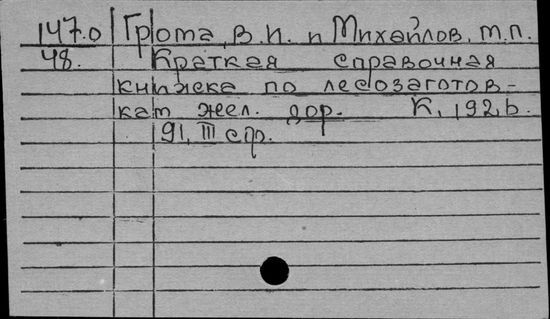 147.0 Грюта, В.И. и Михайлов, М.П.
48. Краткая справочная
книжка по лесозаготов-
кам жел. дор. К, 192,b.
91, III стр.